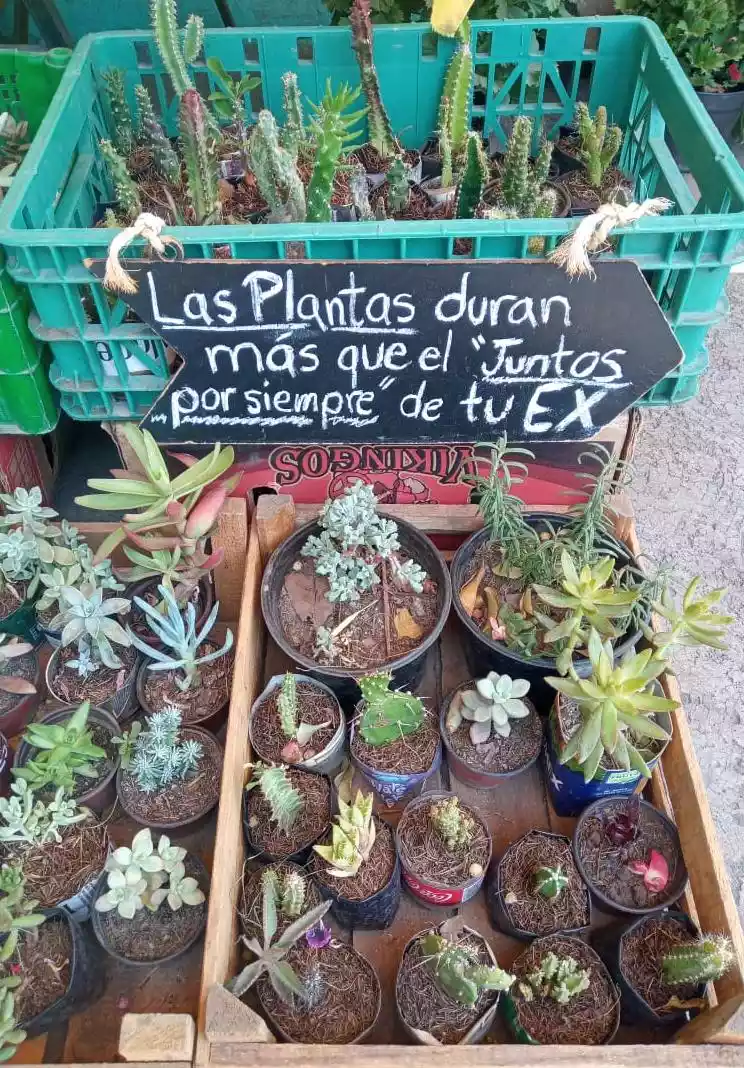 Las Plantas duran
más que el "Juntos
por siempre" de tu EX
VIKINGOS
Coca-Cola